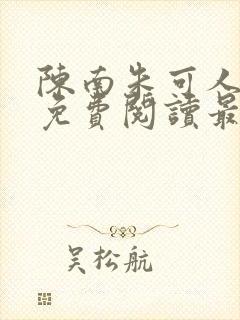 陳南朱可人
免費閱讀最
吳松航